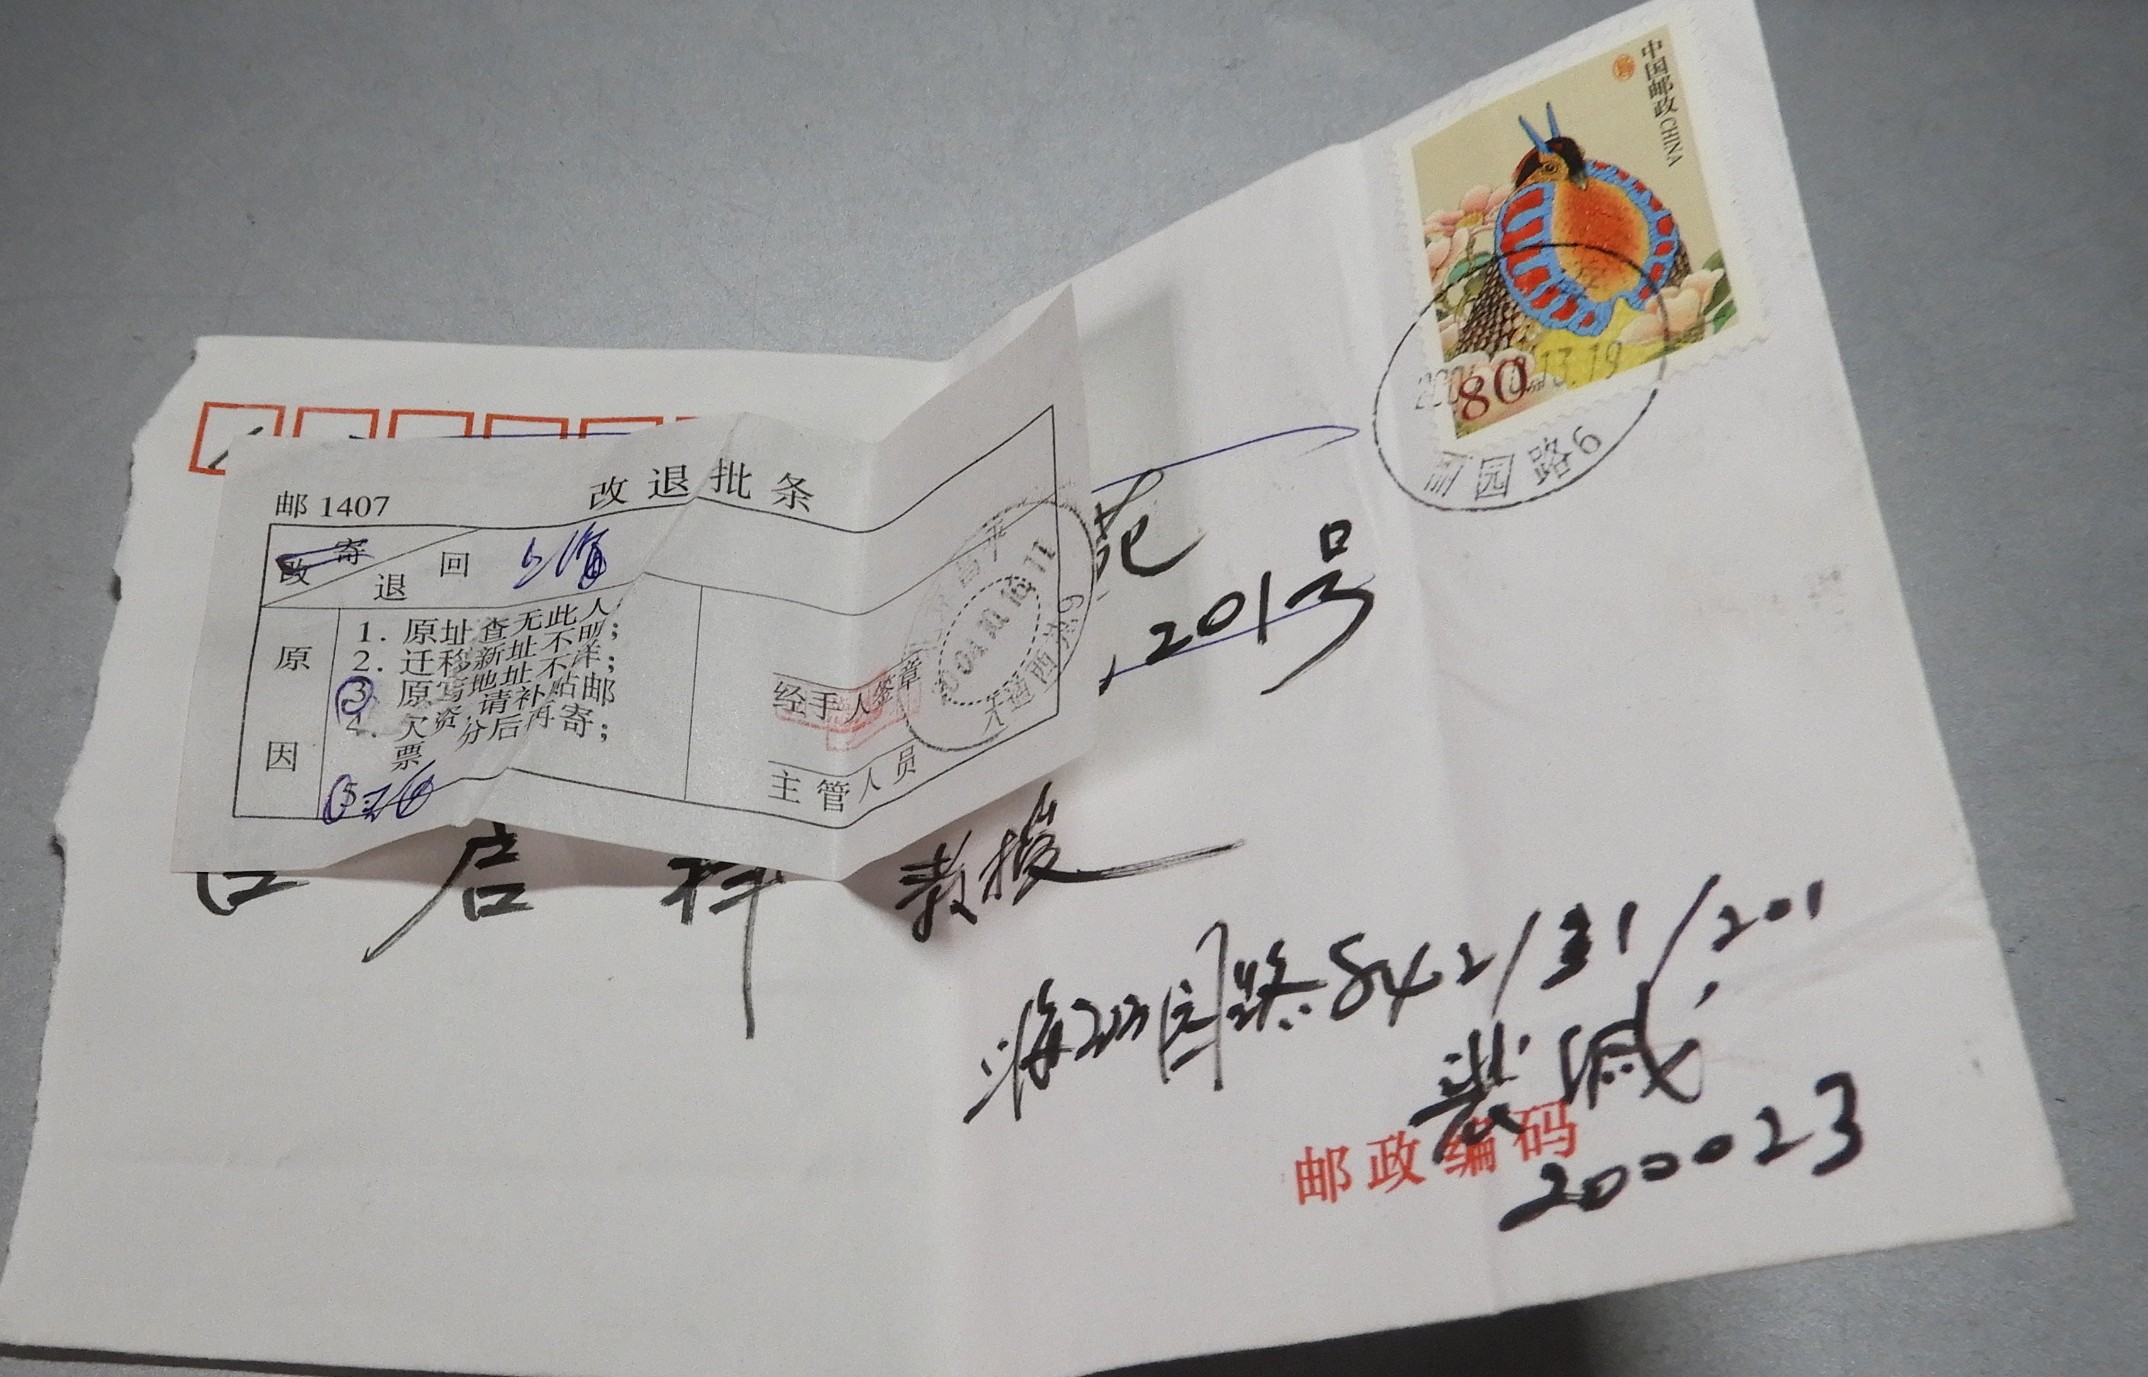 中国邮政CHINA
80
丽园路6
邮 1407
改退批条
改寄
退 回 上海
原因
1. 原址查无此人;
2. 迁移新址不明;
3. 原写地址不详;
4. 欠资,请补贴邮
票 分后再寄;
5.
经手人签章
主管人员
苑
201号
启祥 教授
上海丽园路842/31/201
裘
邮政编码
200023